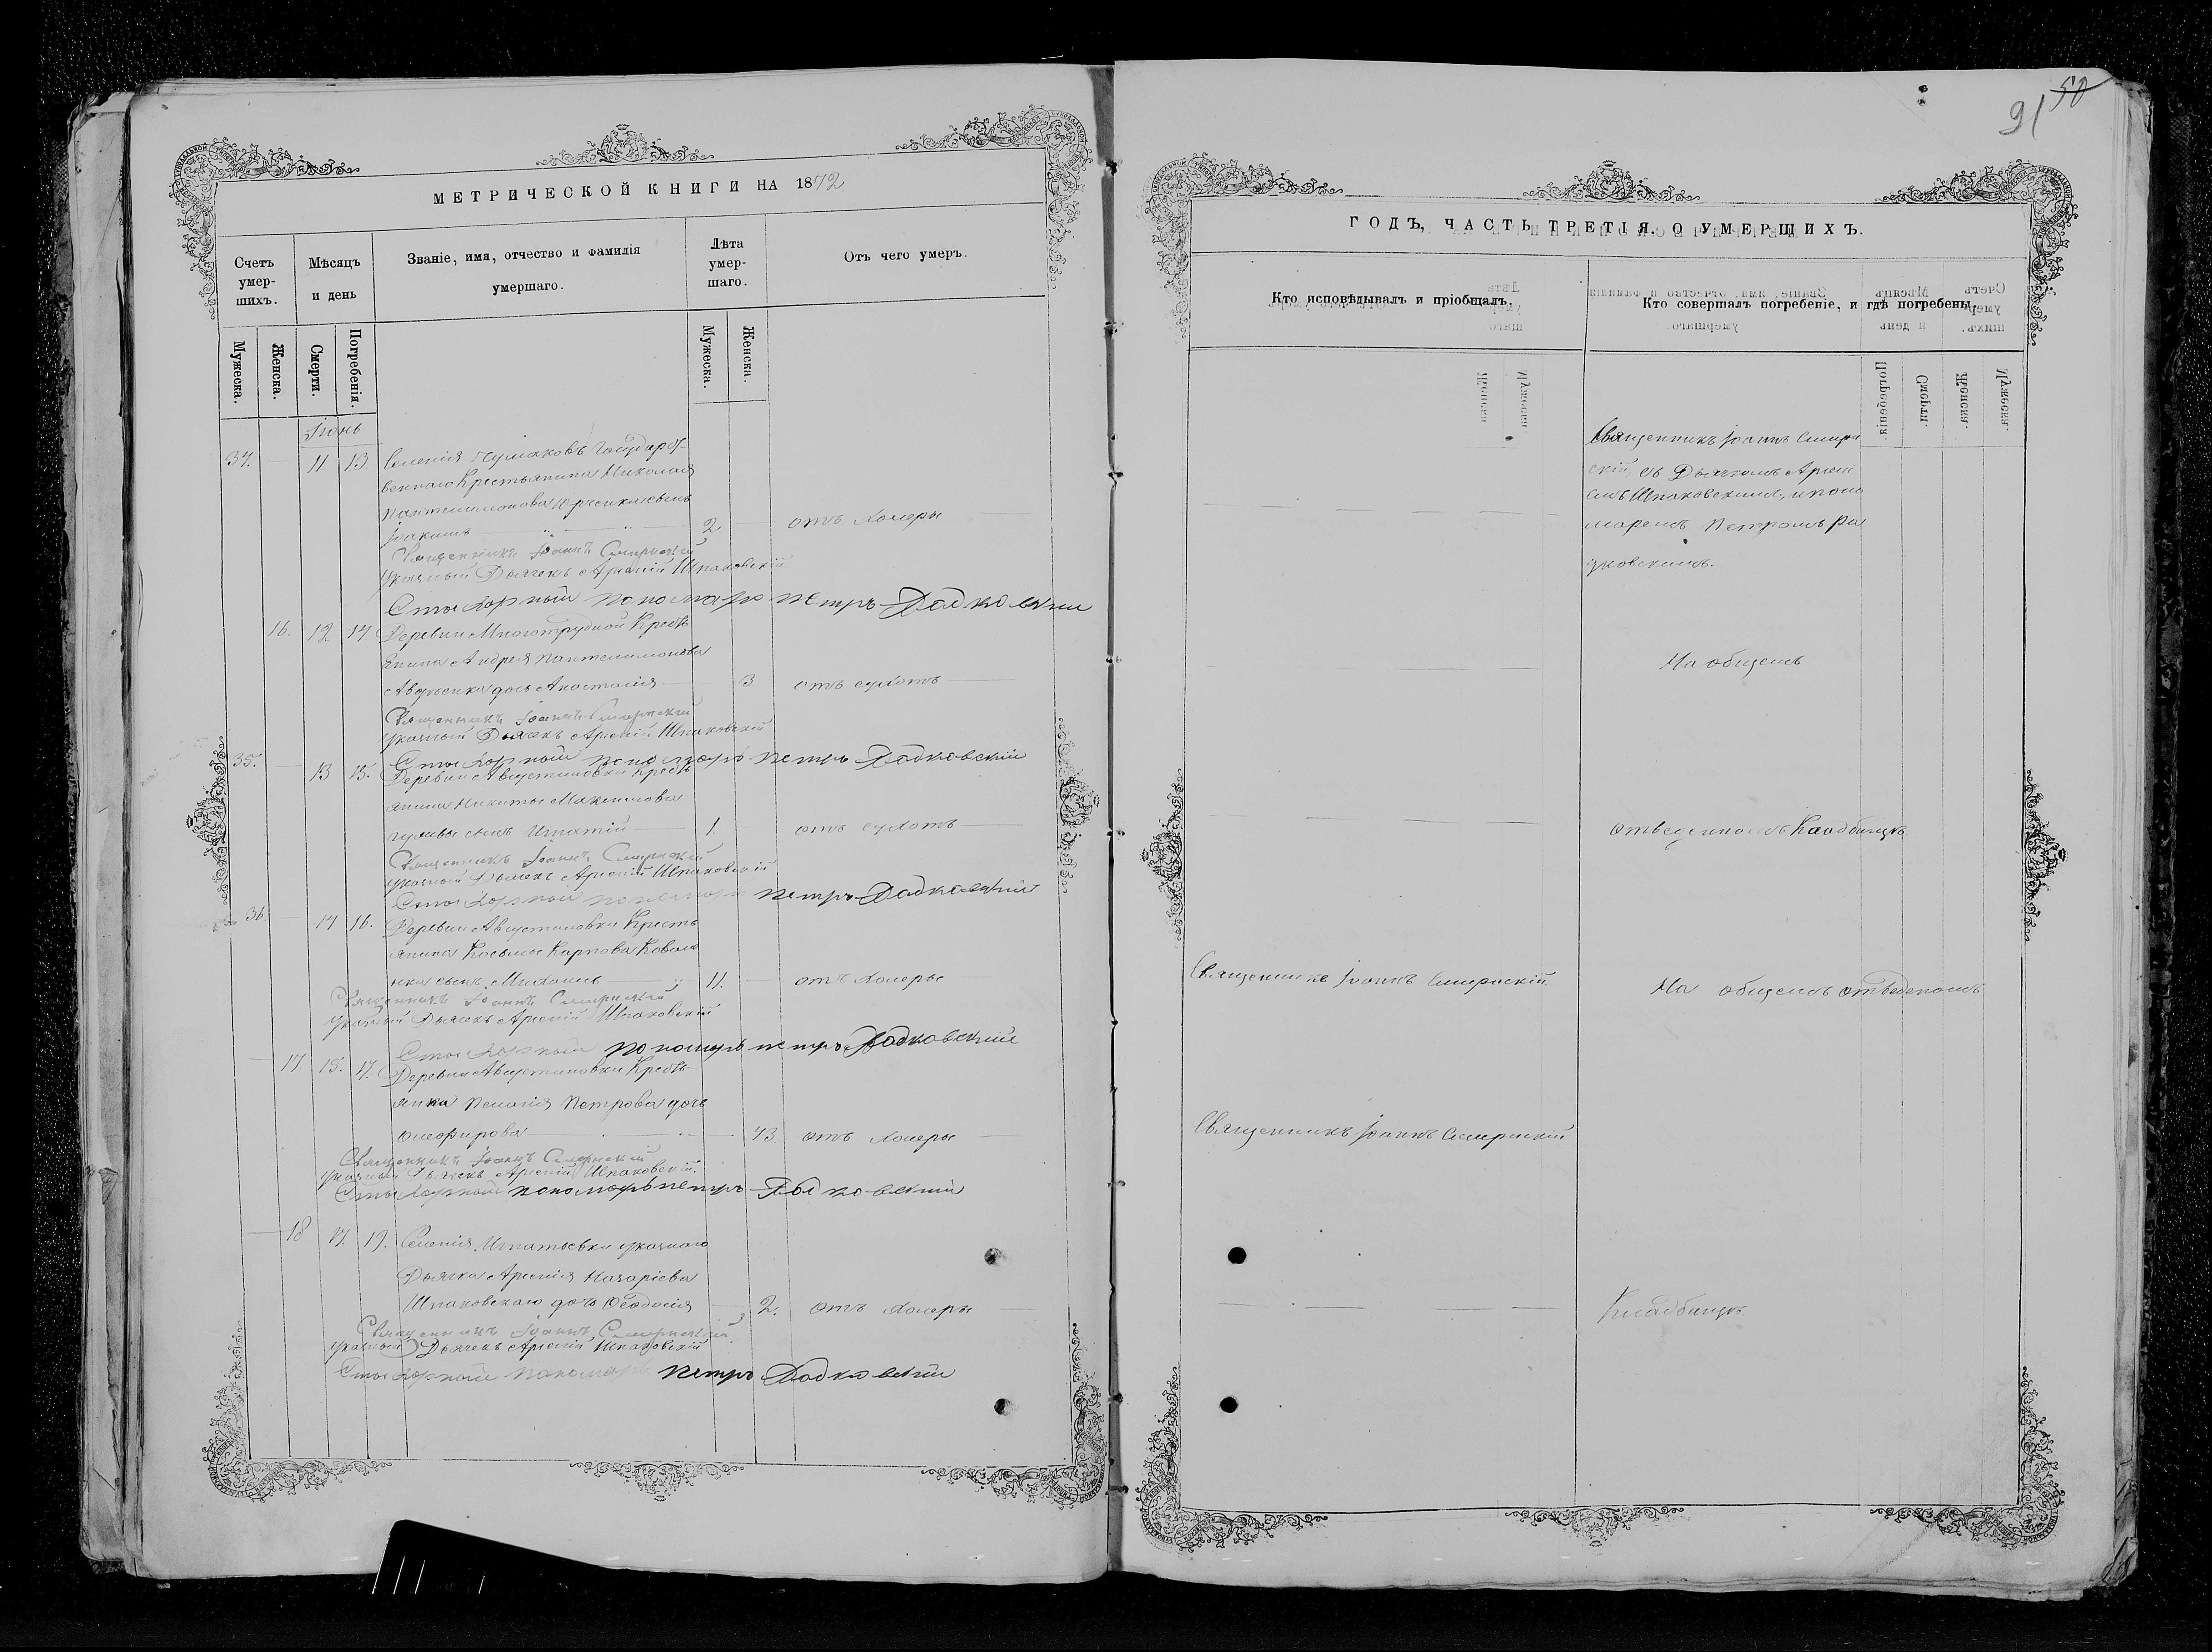 МЕТРИЧЕСКОЙ КНИГИ НА 1872
Счетъ умер-шихъ.
Мѣсяцъ и день
Званіе, имя, отчество и фамилія умершаго.
Лѣта умер-шаго.
Отъ чего умеръ.
Мужеска.
Женска.
Смерти.
Погребенія.
Мужеска.
Женска.
Іюнь
11 13 Селенія Государст-
веннаго Крестьянина Николая
Пантелимонова сынъ
Іоакимъ 2 отъ холеры
Священникъ Іоаннъ Смирнскій
указный Дьячекъ Арсеній Шпаковскій
Стихарный пономарь Петръ Радковскій
16. 12 14. Деревни Многотрудной Кресть
янина Андрея Пантелимонова
дочь Анастасія 3 отъ сухотъ
Священникъ Іоаннъ Смирнскій
указный Дьячекъ Арсеній Шпаковскій
Стихарный пономарь Петръ Радковскій
35. 13 15. Деревни Августиновки Кресть
янина Никиты Максимова
сынъ Игнатій 1. отъ сухотъ
Священникъ Іоаннъ Смирнскій
указный Дьячекъ Арсеній Шпаковскій
Стихарный пономарь Петръ Радковскій
36. 14 16. Деревни Августиновки Кресть
янина Косьмы Карпова Ковале
нка сынъ Михаилъ 11. отъ холеры
Священникъ Іоаннъ Смирнскій
указный Дьячекъ Арсеній Шпаковскій
Стихарный пономарь Петръ Радковскій
17 15. 17. Деревни Августиновки Кресть-
янка Пелагія Петрова дочь
43. отъ холеры
Священникъ Іоаннъ Смирнскій
указный Дьячекъ Арсеній Шпаковскій.
Стихарный пономарь Петръ Радковскій
18 17. 19. Селенія Игнатьевки указнаго
Дьячка Арсенія Назаріева
Шпаковскаго дочь Ѳеодосія 2. отъ холеры
Священникъ Іоаннъ Смирнскій
указный Дьячекъ Арсеній Шпаковскій
Стихарный пономарь Петръ Радковскій
91 50
ГОДЪ, ЧАСТЬ ТРЕТІЯ, О УМЕРШИХЪ.
Кто исповѣдывалъ и пріобщалъ.
Кто совершалъ погребеніе, и гдѣ погребены.
Священникъ Іоаннъ Смирн
скій, съ Дьячкомъ Арсені
емъ Шпаковскимъ, и поно
маремъ Петромъ Ра
дковскимъ.
На общемъ
отведенномъ Кладбищѣ.
Священникъ Іоаннъ Смирнскій
На общемъ отведеномъ
Священникъ Іоаннъ Смирнскій
Кладбищѣ.